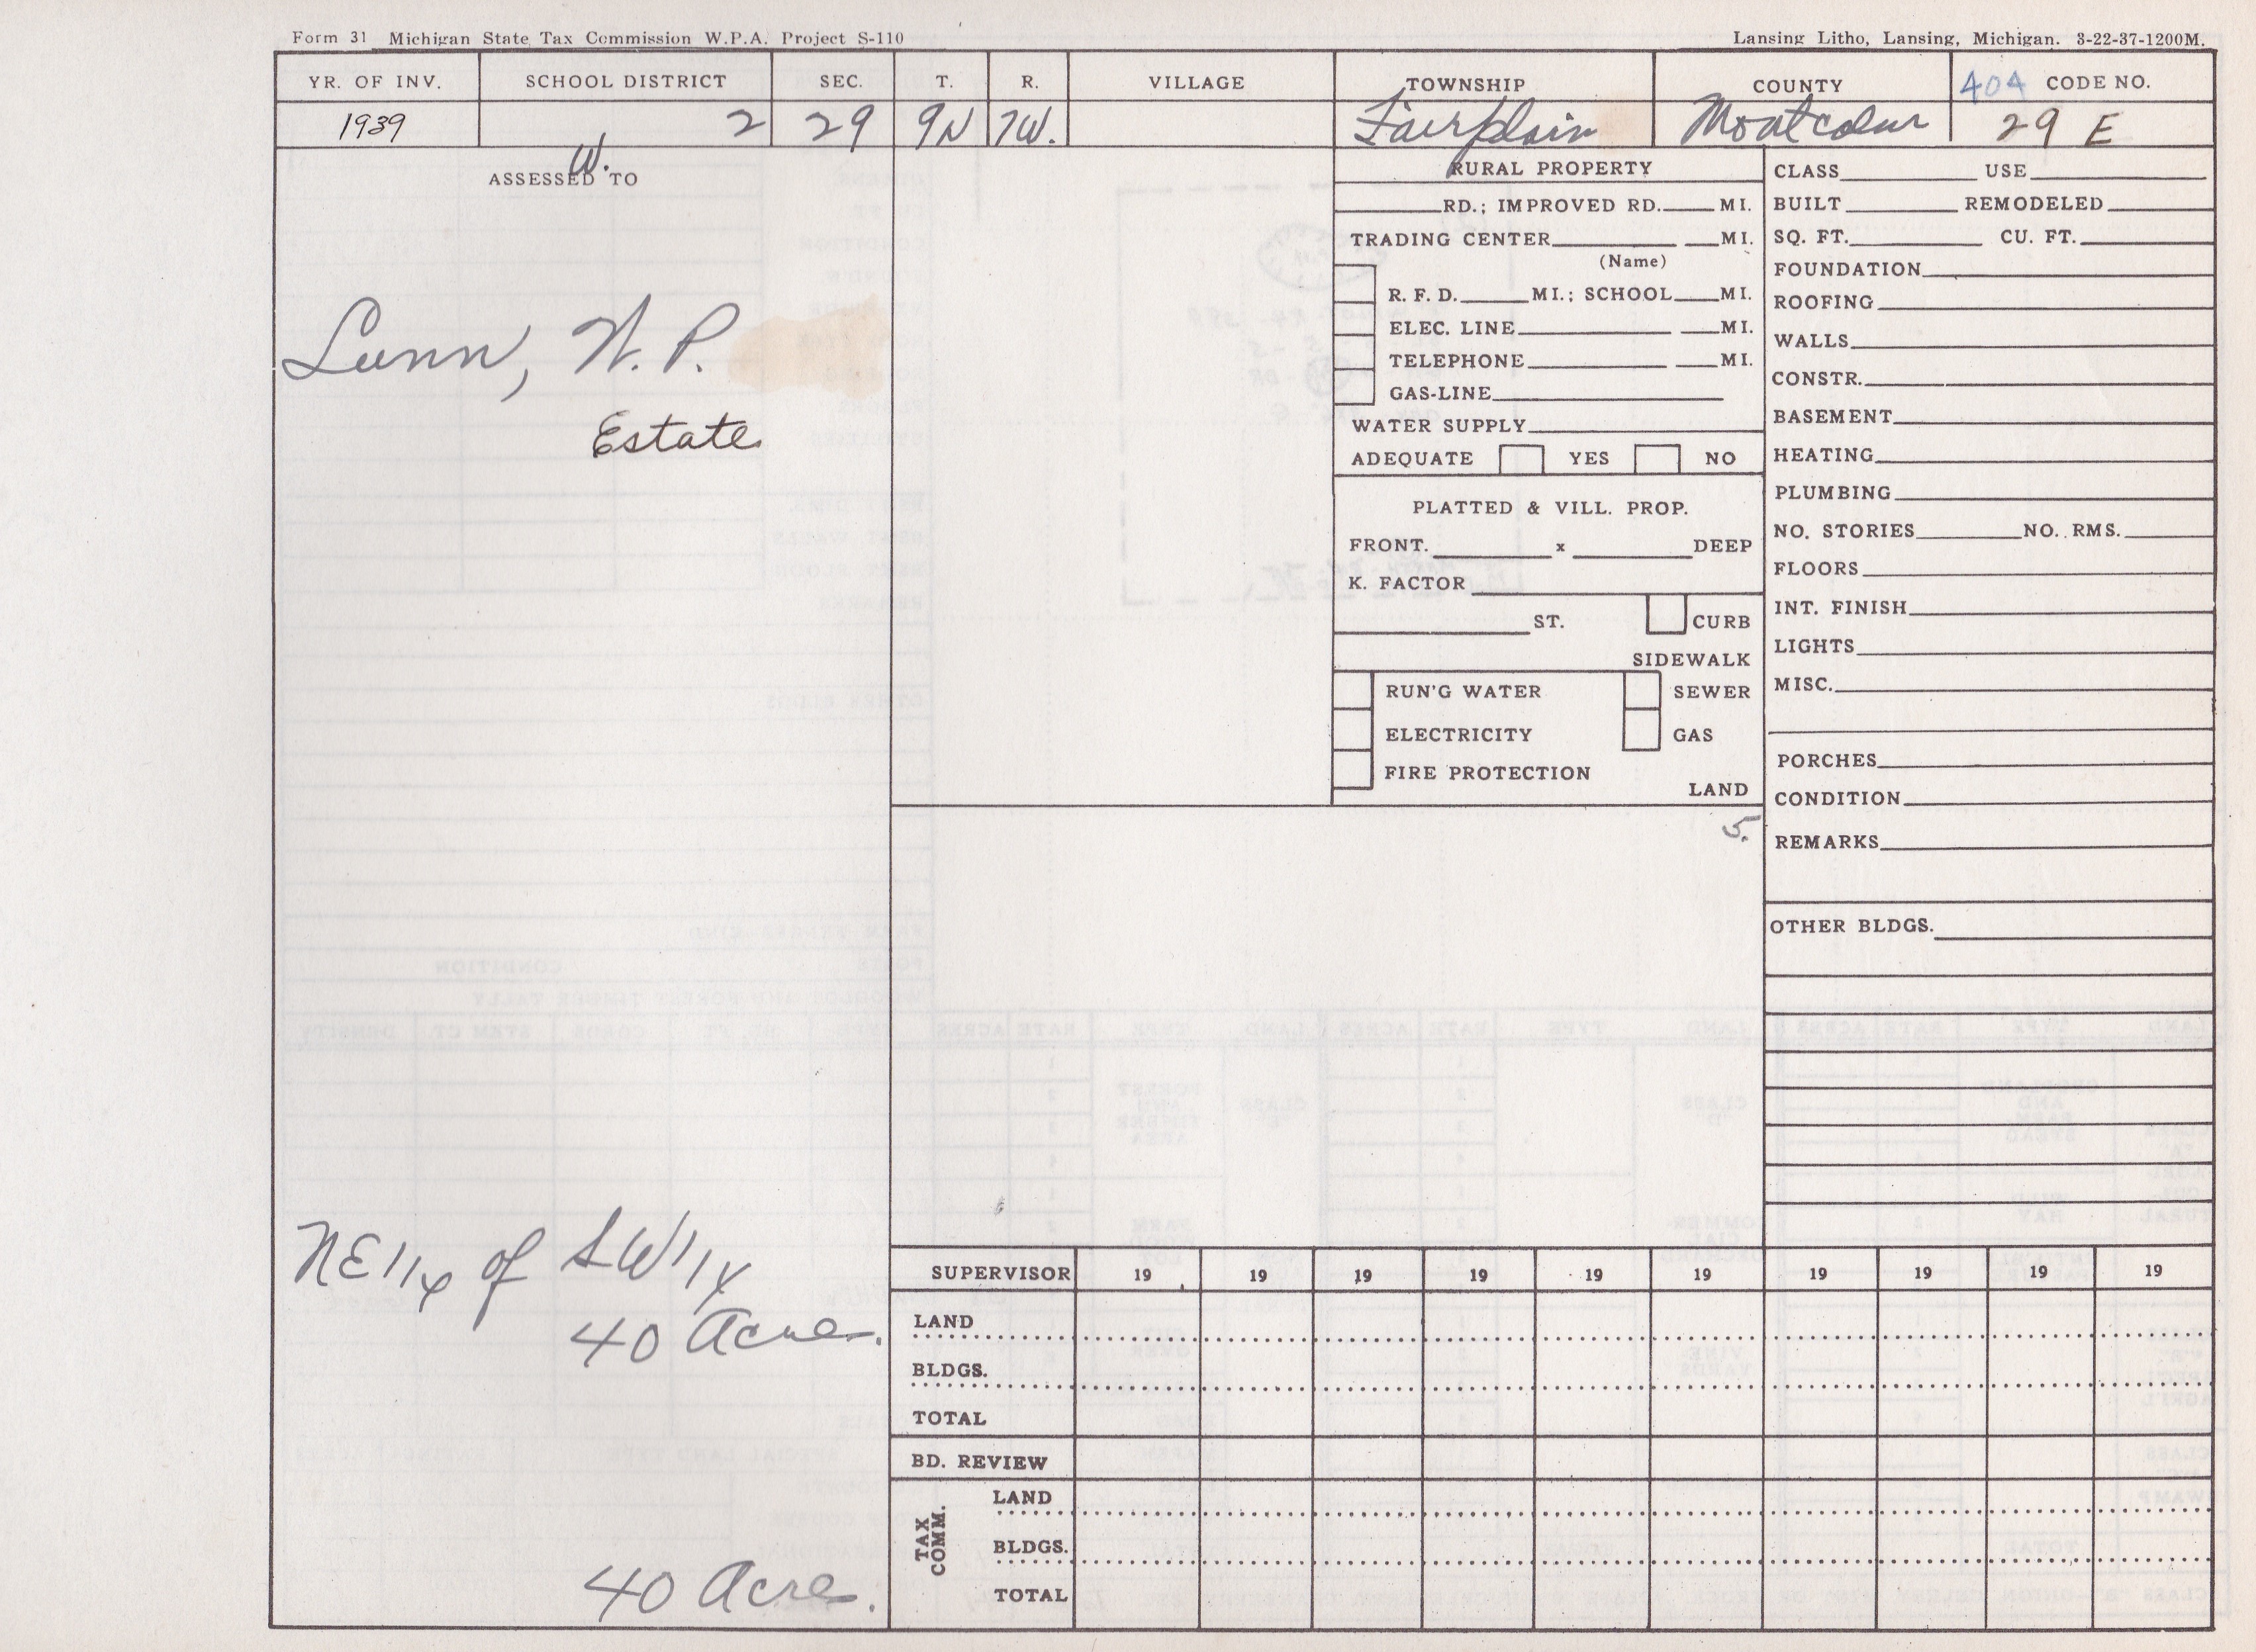 Form 31 Michigan State Tax Commission W.P.A. Project S-110
Lansing Litho, Lansing, Michigan. 3-22-37-1200M.
YR. OF INV. SCHOOL DISTRICT SEC. T. R. VILLAGE TOWNSHIP COUNTY 404 CODE NO.
1939 2 29 9N 7W. Fairplain Montcalm 29 E
W.
ASSESSED TO
Lunn, N. P.
Estate
NE 1/4 of SW 1/4
40 Acre.
40 Acre.
RURAL PROPERTY
RD.; IMPROVED RD. MI.
TRADING CENTER MI.
(Name)
R. F. D. MI.; SCHOOL MI.
ELEC. LINE MI.
TELEPHONE MI.
GAS-LINE
WATER SUPPLY
ADEQUATE YES NO
PLATTED & VILL. PROP.
FRONT. x DEEP
K. FACTOR
ST. CURB
SIDEWALK
RUN'G WATER SEWER
ELECTRICITY GAS
FIRE PROTECTION
LAND
5.
CLASS USE
BUILT REMODELED
SQ. FT. CU. FT.
FOUNDATION
ROOFING
WALLS
CONSTR.
BASEMENT
HEATING
PLUMBING
NO. STORIES NO. RMS.
FLOORS
INT. FINISH
LIGHTS
MISC.
PORCHES
CONDITION
REMARKS
OTHER BLDGS.
SUPERVISOR 19 19 19 19 19 19 19 19 19 19
LAND
BLDGS.
TOTAL
BD. REVIEW
TAX COMM.
LAND
BLDGS.
TOTAL